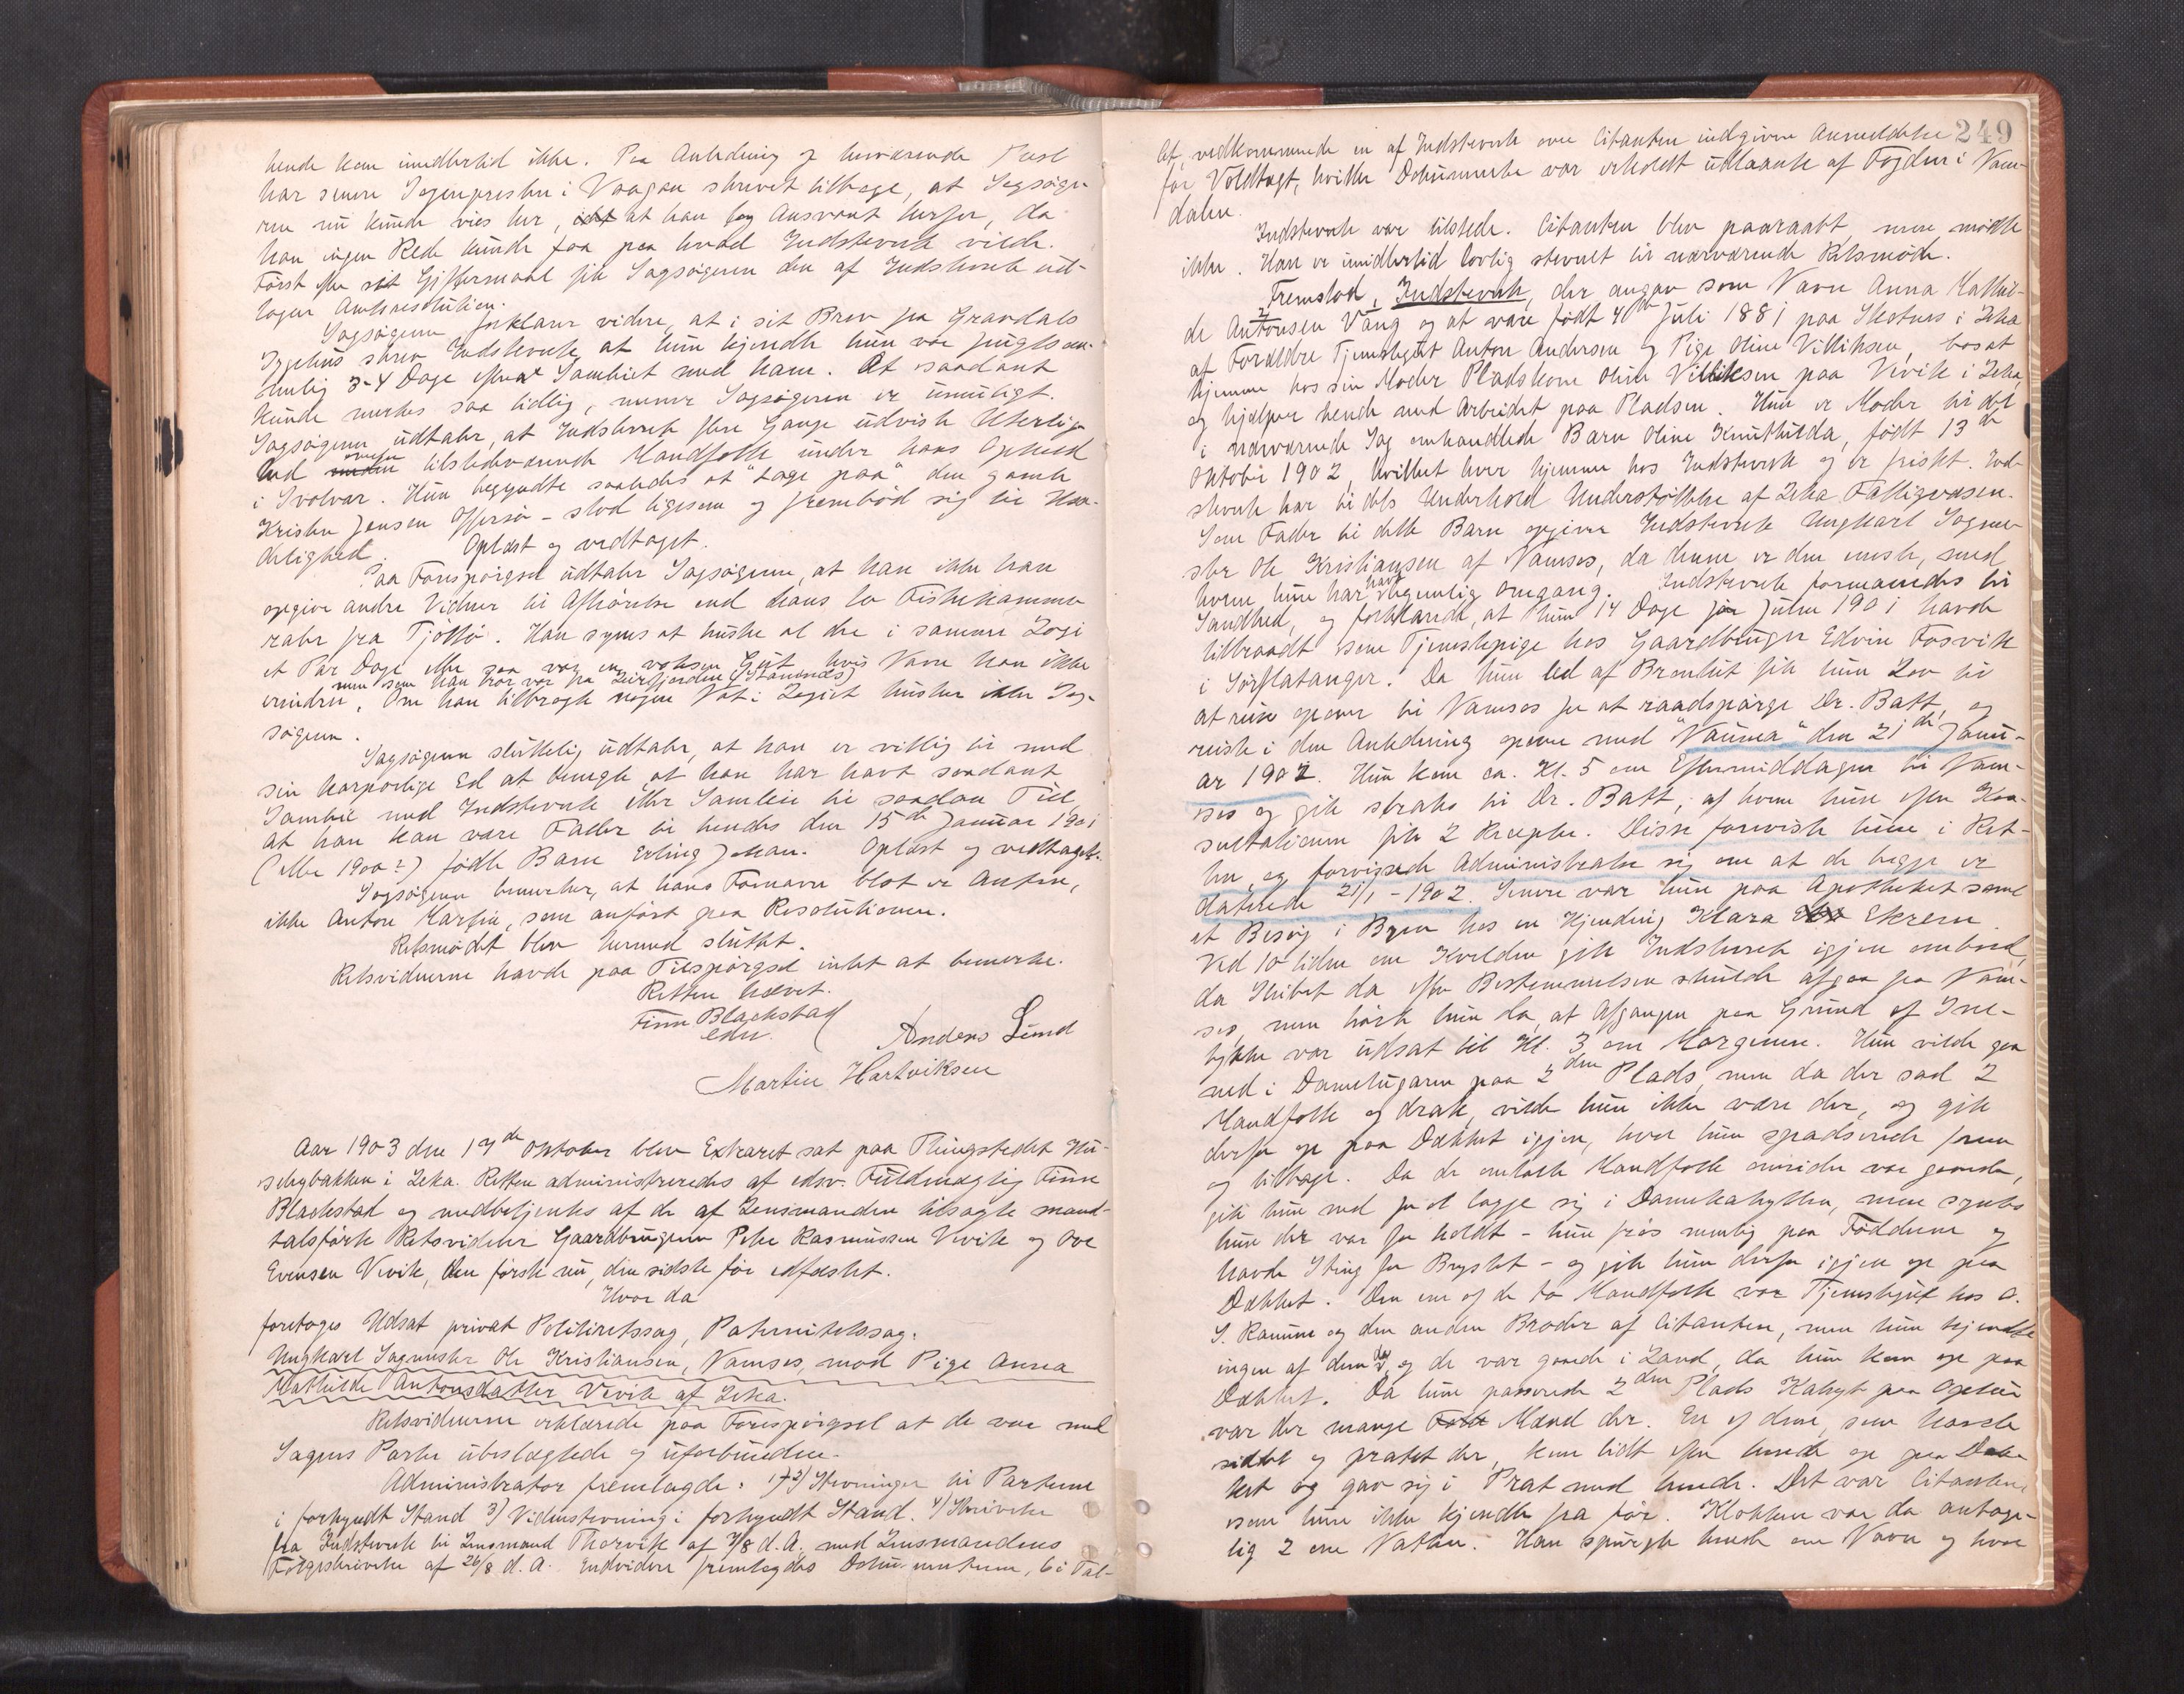 hende kom imidlertid ikke. Paa Anledning af herværende Præst
har senere Sognepresten i Vaagan skrevet tilbage, at Sagsøge-
ren nu kunde vies her, at han tog Ansvaret herfor, da
han ingen Rede kunde faa paa hvad Indstevnte vilde.
Først efter sit Giftermaal fik Sagsøgeren den af Indstevnte ud-
tagne Amtsresolution.
Sagsøgeren forklarer videre, at i sit Brev fra Gravdals
Sygehus skrev Indstevnte, at hun kjendte hun var frugtsom-
melig 3-4 Dage efter at Samleiet med ham. At saadant
kunde merkes saa tidlig, mener Sagsøgeren er umuligt.
Sagsøgeren udtaler, at Indstevnte flere Gange udviste Uterlig-
hed overfor tilstedeværende Mandfolk under hans Ophold
i Svolvær. Hun begyndte saaledes at "tage paa" den gamle
Kristen Jensen Offersø - stod ligesom og frembød sig til Use-
delighed. Oplæst og vedtaget.
Paa Forespørgsel udtaler Sagsøgeren, at han ikke kan
opgive andre Vidner til Afhørelse end hans to Fiskekamme-
rater fra Tjøttø. Han synes at huske at der i samme Logi
et Par Dage eller saa var en voksen Gut, hvis Navn han ikke
men som han tror var fra Leirfjorden (Stamnes)
erindrer. Om han tilbragte nogen Nat i Logiet husker ikke Sag-
søgeren.
Sagsøgeren sluttelig udtaler, at han er villig til med
sin korporlige Ed at benegte at han har havt saadant
Samleie med Indstevnte eller Samleie til saadan Tid,
at han kan være Fader til hendes den 15de Januar 1901
(eller 1900?) fødte Barn Erling Johan. Oplæst og vedtaget.
Sagsøgeren bemerker, at hans Fornavn blot er Anton,
ikke Anton Martin, som anført paa Resolutionen.
Retsmødet blev hermed sluttet.
Retsvidnerne havde paa Tilspørgsel intet at bemerke.
Retten hævet.
Finn Blackstad
edsv.
Anders Lund
Martin Hartviksen
Aar 1903 den 17de Oktober blev Extraret sat paa Thingstedet Hu-
sebybakken i Leka. Retten administreredes af edsv. Fuldmægtig Finn
Blackstad og medbetjentes af de af Lensmanden tilsagte mand-
talsførte Retsvidner Gaardbrugerne Peter Rasmussen Vivik og Ove
Evensen Vivik, den første nu, den sidste før edfæstet.
Hvor da
foretoges Udsat privat Politiretssag, Paternitetssag:
Ungkarl Sagmester Ole Kristiansen, Namsos, mod Pige Anna
Mathilde Antonsdatter Vivik af Leka.
Retsvidnerne erklærede paa Forespørgsel at de var med
Sagens Parter ubeslægtede og uforbundne.
Administrator fremlagde: 1) 2) Stevninger til Parterne
i forkyndt Stand 3) Vidnestevning i forkyndt Stand. 4) Skrivelse
fra Indstevnte til Lensmand Thorvik af 7/8 d. A. med Lensmandens
Følgeskrivelse af 26/8 d. A. Endvidere fremlagdes Dokumenterne, 6 i Tal-
249
let, vedkommende en af Indstevnte over Citanten indgiven Anmeldelse
for Voldtægt, hvilke Dokumenter var erholdt udlaante af Fogden i Nam-
dalen.
Indstevnte var tilstede. Citanten blev paaraabt, men mødte
ikke. Han er imidlertid lovlig stevnet til nærværende Retsmøde.
Fremstod, Indstevnte, der angav som Navn Anna Mathil-
de Antonsen Vang og at være født 4de Juli 1881 paa Skotnes i Leka
af Forældre Tjenestegut Anton Andersen og Pige Oline Villiksen, bosat
hjemme hos sin Moder Pladskone Oline Villiksen paa Vivik i Leka,
og hjælper hende med Arbeidet paa Pladsen. Hun er Moder til det
i nærværende Sag omhandlede Barn Oline Knuthilda, født 13de
Oktober 1902, hvilket lever hjemme hos Indstevnte og er friskt. Ind-
stevnte har til dets Underhold Understøttelse af Leka Fattigvæsen.
Som Fader til dette Barn opgiver Indstevnte Ungkarl Sagme-
ster Ole Kristiansen af Namsos, da denne er den eneste, med
hvem hun har havt legemlig Omgang. Indstevnte formanedes til
Sandhed, og forklarede, at hun 14 Dage før Julen 1901 havde
tiltraadt som Tjenestepige hos Gaardbruger Edvin Fosvik
i Sørflatanger. Da hun led af Bronkit fik hun Lov til
at reise opover til Namsos for at raadspørge Dr. Batt, og
reiste i den Anledning opover med "Nauma" den 21de Janu-
ar 1902. Hun kom ca. Kl. 5 om Eftermiddagen til Nam-
sos og gik straks til Dr. Batt, af hvem hun efter Kon-
sultationen fik 2 Recepter. Disse foreviste hun i Ret-
ten og forvissede Administrator sig om at de begge er
daterede 21/1 - 1902. Senere var hun paa Apotheket samt
et Besøg i Byen hos en Kjending Klara Ekrem.
Ved 10 tiden om Kvelden gik Indstevnte igjen ombord,
da Skibet da efter Bestemmelsen skulde afgaa fra Nam-
sos, men hørte hun da, at Afgangen paa Grund af Sne-
tykke var udsat til Kl. 3 om Morgenen. Hun vilde gaa
ned i Damelugaren paa 2den Plads, men da der sad 2
Mandfolk og drak, vilde hun ikke være der, og gik
derfor op paa Dækket igjen, hvor hun spadserede frem
og tilbage. Da de omtalte Mandfolk omsider var gaaede,
gik hun ned for at lægge sig i Damekahytten, men syntes
hun der var for koldt - hun frøs nemlig paa Fødderne og
havde Sting for Brystet - og gik hun derfor igjen op paa
Dækket. Den ene af de to Mandfolk var Tjenestegut hos O.
S. Ranum og den anden Broder af Citanten, men hun kjendte
ingen af dem da, og de var gaaede i Land, da hun kom op paa
Dækket. Da hun passerede 2den Plads Kahyt paa Opturen
var der mange Mænd der. En af dem, som havde
siddet og pratet der, kom lidt efter hende op paa Dæk-
ket og gav sig i Prat med hende. Det var Citanten,
som hun ikke kjendte fra før. Klokken var da antage-
lig 2 om Natten. Han spurgte hende om Navn og hvor